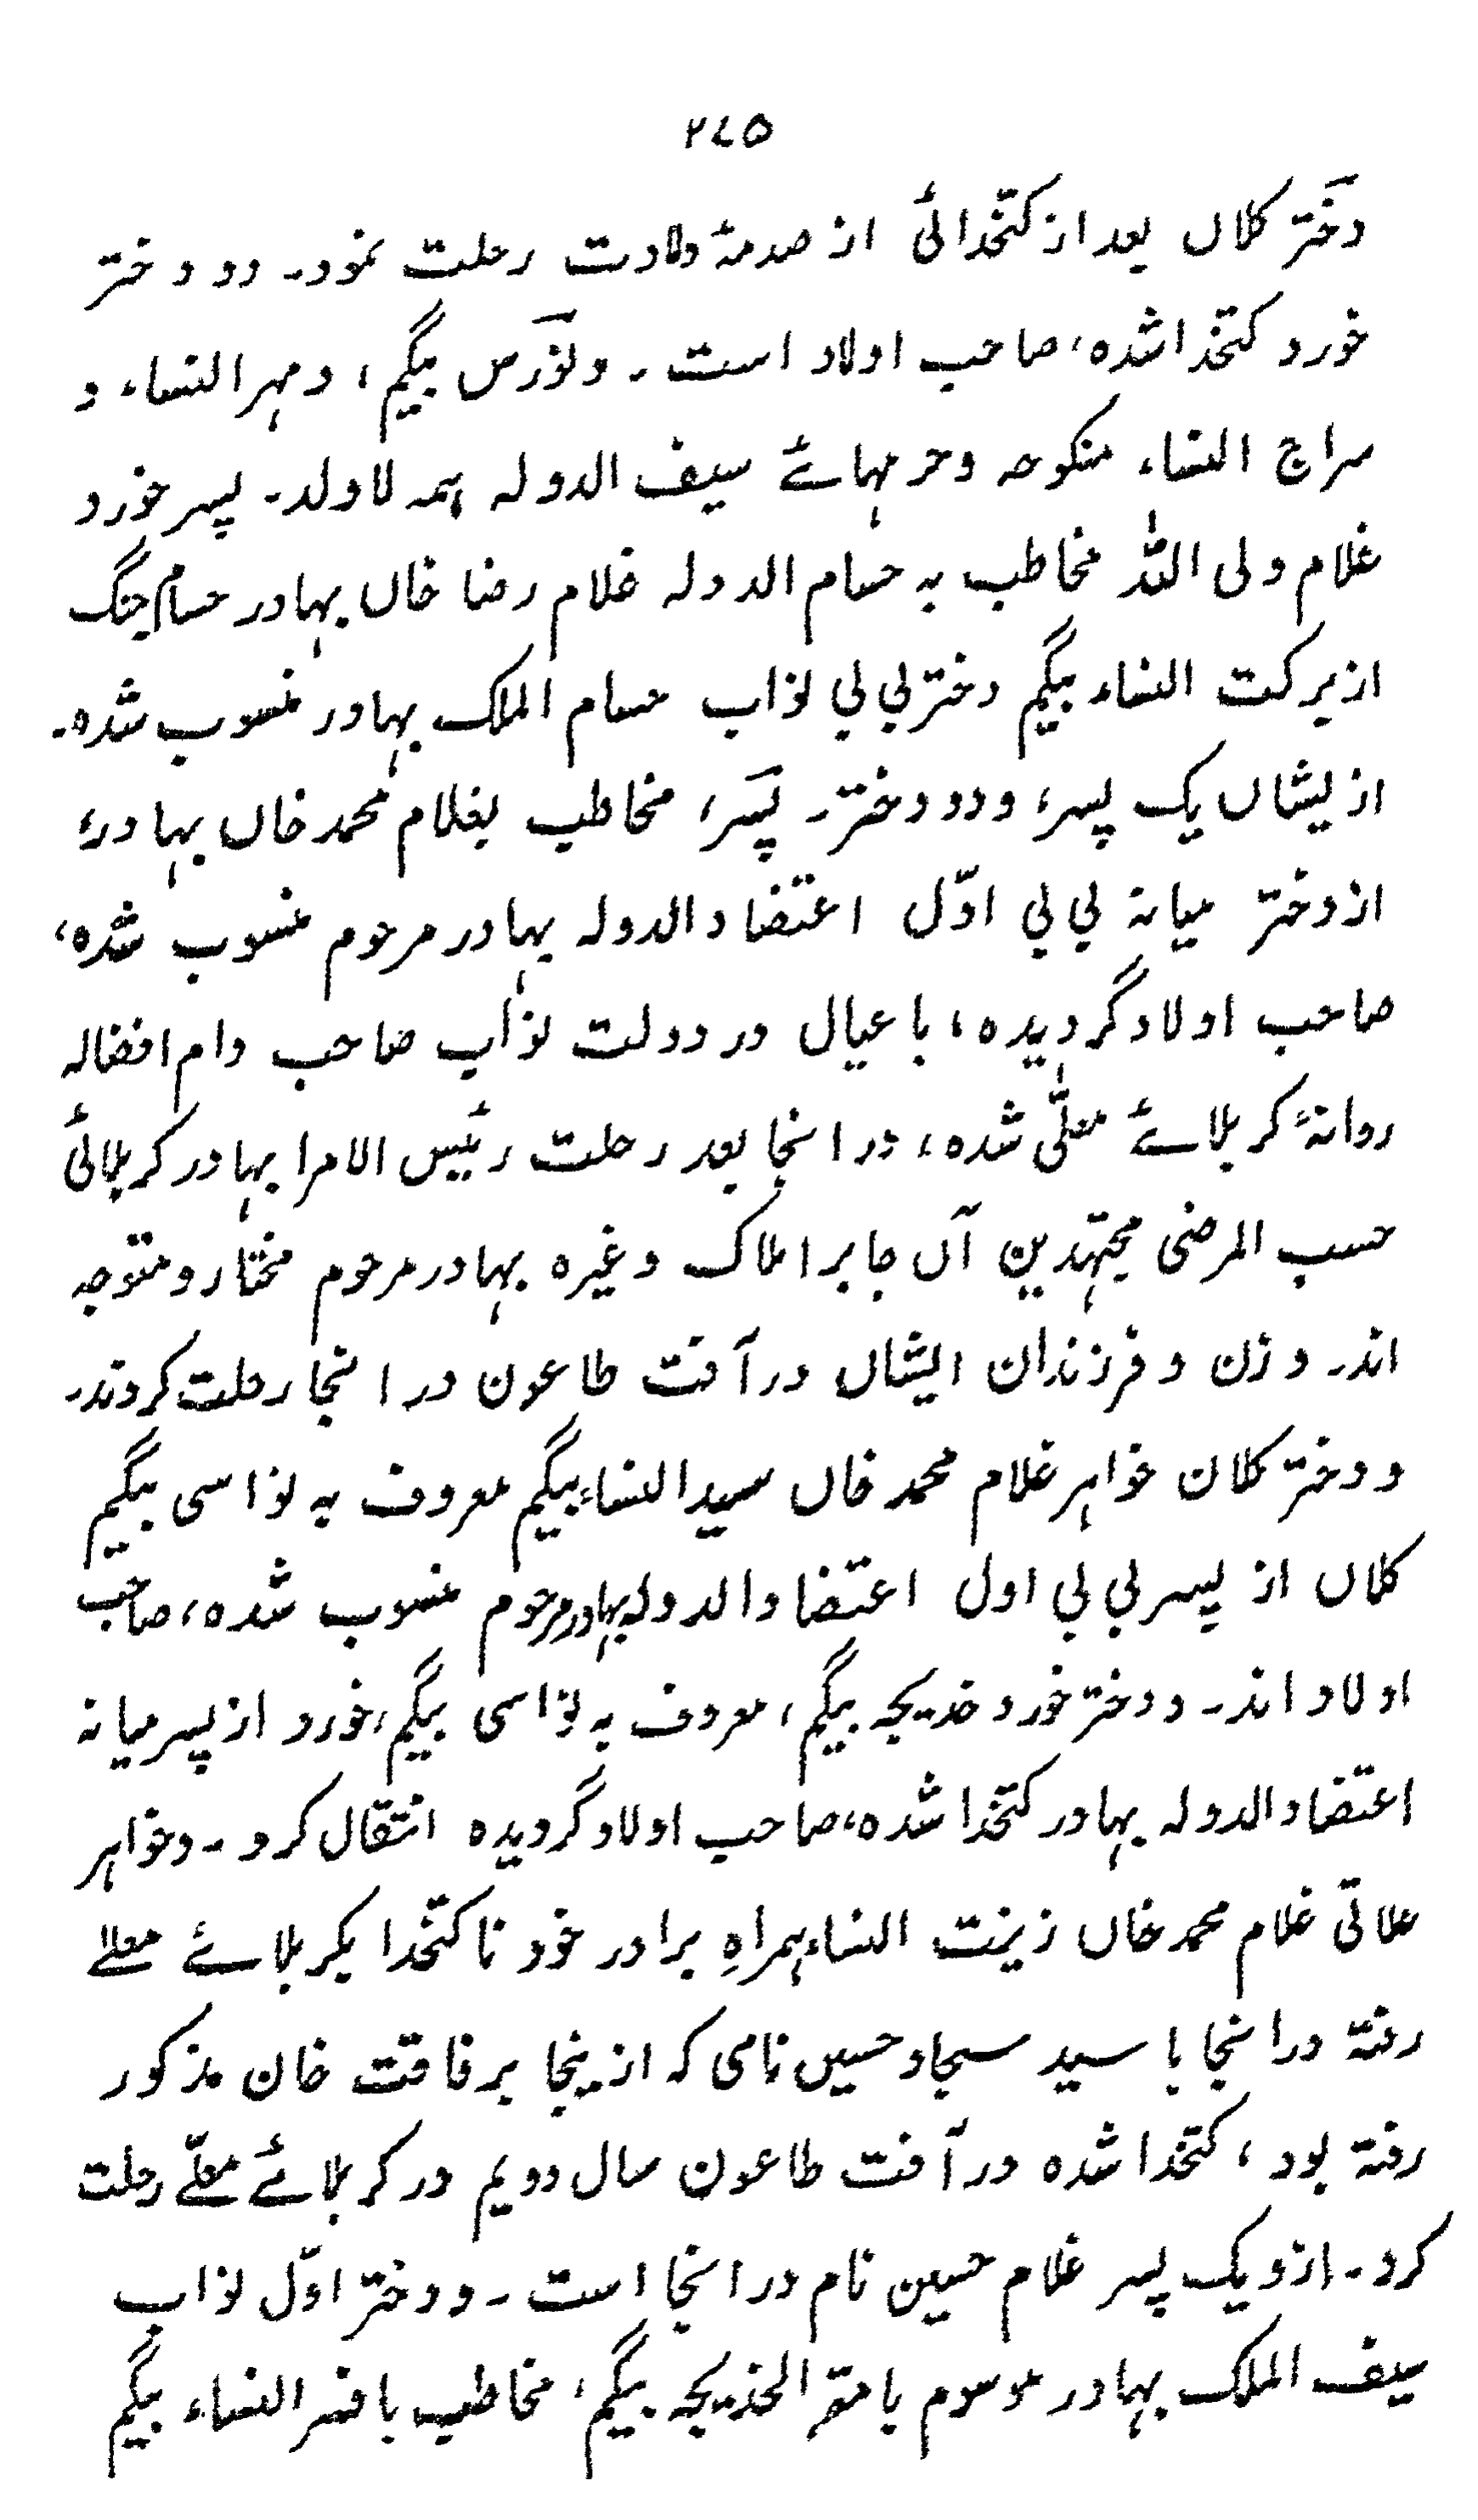 ۲۴۵
دختر کلاں بعد از کتخدائی از صدمۂ ولادت رحلت نمود۔ دو دختر
خورد کتخدا شدہ، صاحب اولاد است۔ و نورس بیگم، و مہر النساء، و
سراج النساء منکوحہ و حرمہائے سیف الدولہ ہمہ لاولد۔ پسر خورد
غلام ولی اللہ مخاطب بہ حسام الدولہ غلام رضا خاں بہادر حسام جنگ
از برکت النساء بیگم دختر بی بی نواب حسام الملک بہادر منسوب شدہ۔
ازیشاں یک پسر، و دو دختر۔ پسر، مخاطب بغلام محمد خاں بہادر،
از دختر میانہ بی بی اوّل اعتضاد الدولہ بہادر مرحوم منسوب شدہ،
صاحب اولاد گردیدہ، با عیال در دولت نواب صاحب دام افضالہ
روانۂ کربلائے معلّٰی شدہ، در انجا بعد رحلت رئیس الامرا بہادر کربلائی
حسب المرضی مجتہدین آں جا بر املاک وغیرہ بہادر مرحوم مختار و متوجہ
اند۔ و زن و فرزندان ایشاں در آفت طاعون در انجا رحلت کردند۔
و دختر کلان خواہر غلام محمد خاں سید النساء بیگم معروف بہ نواسی بیگم
کلاں از پسر بی بی اول اعتضاد الدولہ بہادر مرحوم منسوب شدہ، صاحب
اولاد اند۔ و دختر خورد خدیجہ بیگم، معروف بہ نواسی بیگم، خورد از پسر میانہ
اعتضاد الدولہ بہادر کتخدا شدہ، صاحب اولاد گردیدہ انتقال کرد۔ و خواہر
علاتی غلام محمد خاں زینت النساء ہمراہِ برادر خود ناکتخدا بکربلائے معلے
رفتہ در انجا با سید سجاد حسیں نامی کہ ازینجا برفاقت خان مذکور
رفتہ بود، کتخدا شدہ در آفت طاعون سال دویم در کربلائے معلّے رحلت
کرد۔ ازو یک پسر غلام حسین نام در انجا است۔ و دختر اوّل نواب
سیف الملک بہادر موسوم بامتہ الخدیجہ بیگم، مخاطب بافسر النساء بیگم